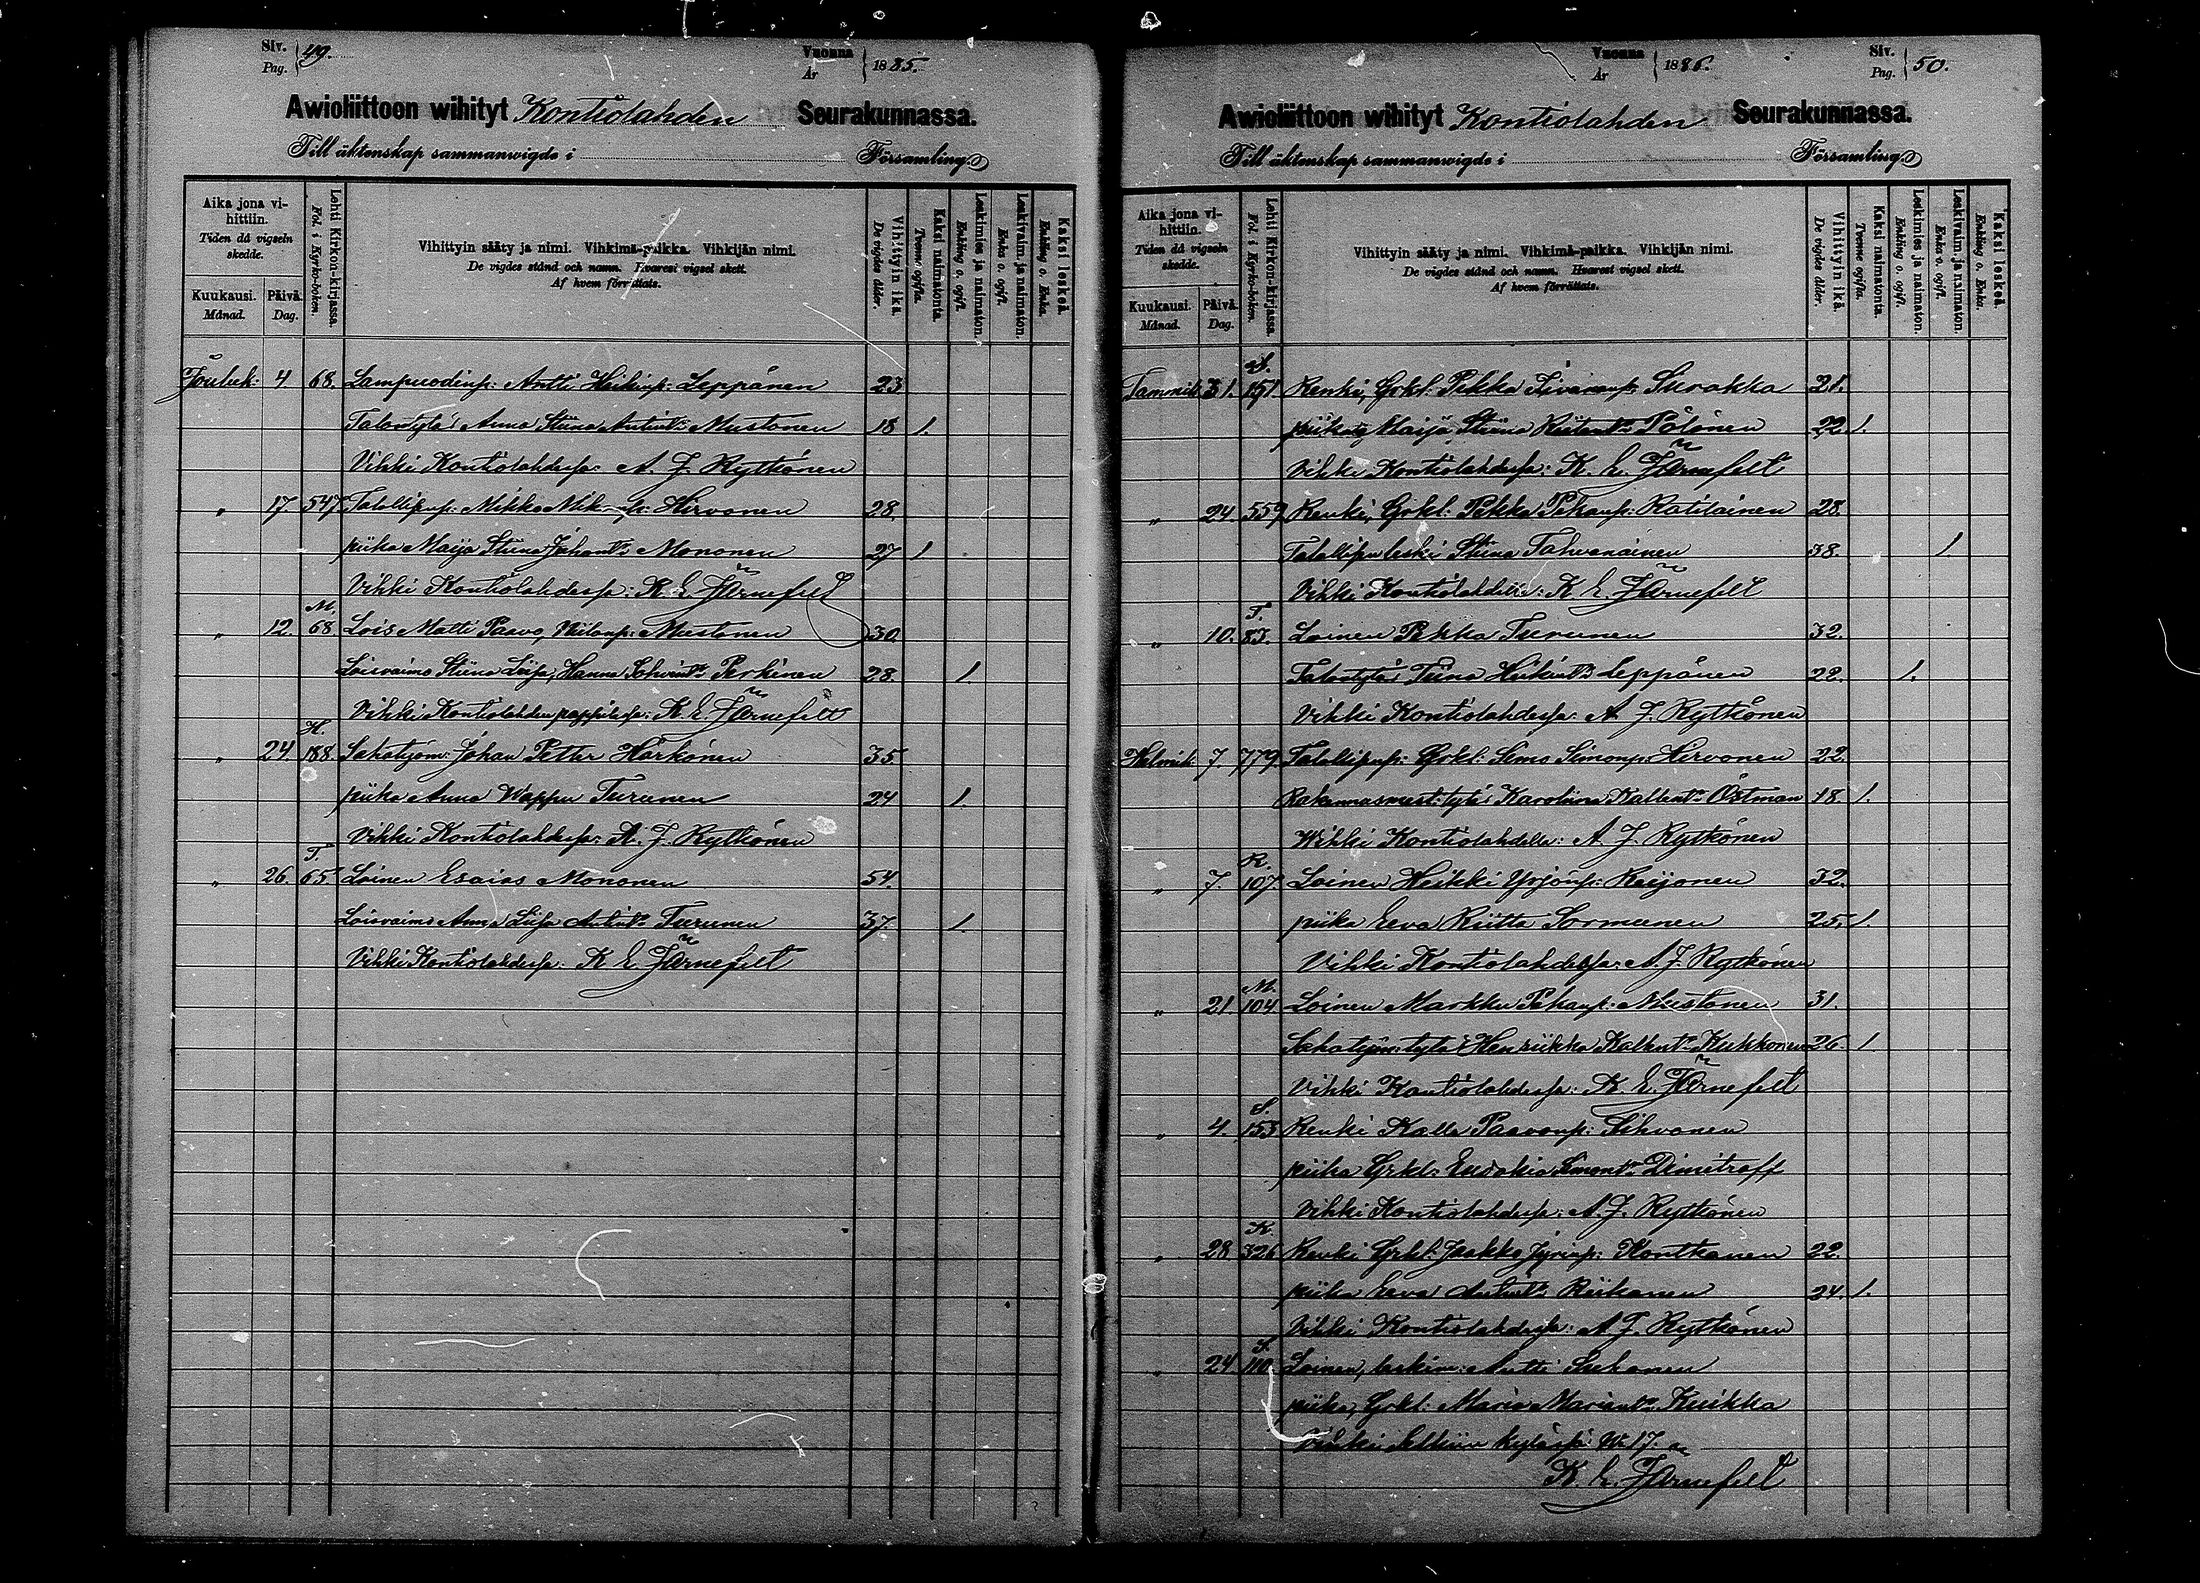 Siv. Pag. 49.
Vuonna År 1885.
Awioliittoon wihityt Kontiolahden Seurakunnassa.
Till äktenskap sammanwigde i Församling.
Aika jona vihittiin. Tiden då vigseln skedde.
Kuukausi. Månad.
Päivä. Dag.
Lehti Kirkon-kirjassa. Fol. i Kyrko-boken.
Vihittyin sääty ja nimi. Vihkimä-paikka. Vihkijän nimi.
De vigdes stånd och namn. Hvarest vigsel skett.
Af hvem förrättats.
Vihittyin ikä. De vigdes ålder.
Kaksi naimatonta. Tvenne ogifta.
Leskimies ja naimaton. Enkling o. ogift.
Leskivaim. ja naimaton. Enka o. ogift.
Kaksi leskeä. Enkling o. Enka.
Jouluk: 4 68. Lampuodinp: Antti Heikinp: Leppänen 23
Talontytö Anna Stiina Antint: Mustonen 18 1.
Vihki Kontiolahdessa: A. J. Rytkönen
" 17 547 Talollisp: Mikko Mik-p: Hirvonen 28.
piika Maija Stiina Juhant: Mononen 27 1
Vihki Kontiolahdessa: K E Järnefelt
" 12. M. 68 Lois Matti Paavo Mustonen 30
Loisvaimo Stiina Liisa, Hanna Perkinen 28. 1.
Vihki Kontiolahden pappilassa: K E Järnefelt
" 24 H. 188. Sahatyöm: Johan Petter Härkönen 35
piika Anna Wappu Turunen 24 1.
Vihki Kontiolahdessa: A. J. Rytkönen
" 26. T. 65. Loinen Esaias Mononen 54.
Loisvaimo Anna Liisa Antint: Turunen 37. 1.
Vihki Kontiolahdessa: K E Järnefelt
Vuonna År 1886.
Siv. Pag. 50.
Awioliittoon wihityt Kontiolahden Seurakunnassa.
Till äktenskap sammanwigde i Församling.
Aika jona vihittiin. Tiden då vigseln skedde.
Kuukausi. Månad.
Päivä. Dag.
Lehti Kirkon-kirjassa. Fol. i Kyrko-boken.
Vihittyin sääty ja nimi. Vihkimä-paikka. Vihkijän nimi.
De vigdes stånd och namn. Hvarest vigsel skett.
Af hvem förrättats.
Vihittyin ikä. De vigdes ålder.
Kaksi naimatonta. Tvenne ogifta.
Leskimies ja naimaton. Enkling o. ogift.
Leskivaim. ja naimaton. Enka o. ogift.
Kaksi leskeä. Enkling o. Enka.
Tammik: 31. S. 151 Renki, Grkl: Pekka Iivananp: Surakka 21.
piika Maija Stiina Pölönen 22. 1.
Vihki Kontiolahdessa: K. E. Järnefelt
" 24. 559 Renki, Grkl: Pekka Pekanp: Ratilainen 28.
Talollisen leski Stiina Tahvanainen 38. 1
Vihki Kontiolahdella: K E Järnefelt
" 10. T. 83. Loinen Pekka Turunen 32.
Talontytö Tiina Heikint: Leppänen 22. 1.
Vihki Kontiolahdessa: A J. Rytkönen
Helmik: 7. 779 Talollisp: Grkl: Simo Simonp: Hirvonen 22.
Rakennusmest: tytö Karoliina Kallent: Östman 18. 1.
Wihki Kontiolahdella: A J. Rytkönen
" 7. R. 107. Loinen Heikki Yrjönp: Reijonen 32.
piika Eeva Riitta Sormunen 25. 1.
Vihki Kontiolahdessa: A. J. Rytkönen
" 21. M. 104 Loinen Markku Pekanp: Mustonen 31.
Sahatyöm: tytö Henriikka Kallent: Kukkonen 26. 1.
Vihki Kontiolahdessa: K. E. Järnefelt
" 4. S. 153 Renki Kalle Paavonp: Sihvonen
piika Grkl: Eudokia Simont: Dimitroff
Vihki Kontiolahdessa: A. J. Rytkönen
" 28. K. 326 Renki Grkl: Jaakko Jyrinp: Kontkanen 22.
piika Eeva Antint: Riikonen 24. 1.
Vihki Kontiolahdessa: A J. Rytkönen
" 24 S. 110. Loinen, leskim: Antti Suhonen
piika, Grkl: Maria Kuikka
Vihki Selkien kylässä: No 17.
K. E. Järnefelt